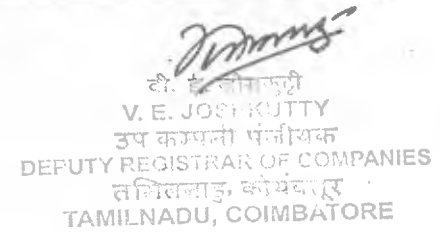 वी. ई.
V. E. JOSHKUTTY
उप कम्पनी पंजीयक
DEPUTY REGISTRAR OF COMPANIES
तमिलनाडु, कोयंबत्तूर
TAMILNADU, COIMBATORE